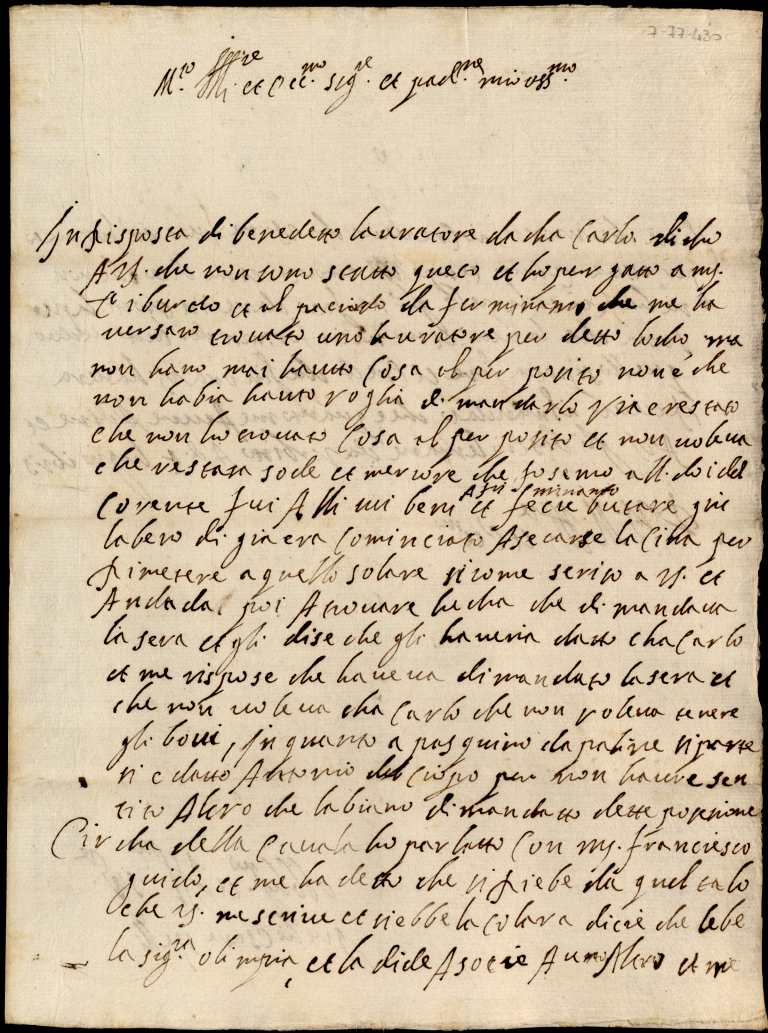 7-77-430
M.to Ill.re et Ecc.mo sig.re et pad.ne mio oss.mo
In risposta di benedetto lauratore da cha Carlo dicho
A V.S. che non sono statto queto et ho per gatto a ms.
Tiburcio et al da ferminamo che me ha
versaro trovato uno lauratore per detto locho ma
non hano mai hautto Cosa al per posito non è che
non habia hauto voglia di mandarlo via e restato
che non ho trovato Cosa al per posito et non voleva
che restasa sode et mercore che fosemo alli doi del
Corente fui Alli mi beni et Afer minamo fecie butare giu
labero di gia era Cominciato Asecarse la Cima per
rimetere a quello solare sicome scrito a V.S. et
Andada poi Atrovare hecha che di mandava
la sera et gli dise che gli haveria datto cha Carlo
et me rispose che haveva dimandato la sera et
che non voleva cha Carlo che non voleva tenere
gli bovi, In quanto a pasquino da patine
si e datto Antonio del Crispo per non havere sen
tito Altro che labiano dimandatto dette posesione
Circha della Cavala ho parlatto Con ms. franciesco
guido, et me ha detto che si riebe da quel talo
che V.S. me scrive et riebbe la Colara dicie che lebe
la sig.ra olimpia, et la dide Asocie A uno Altro et me